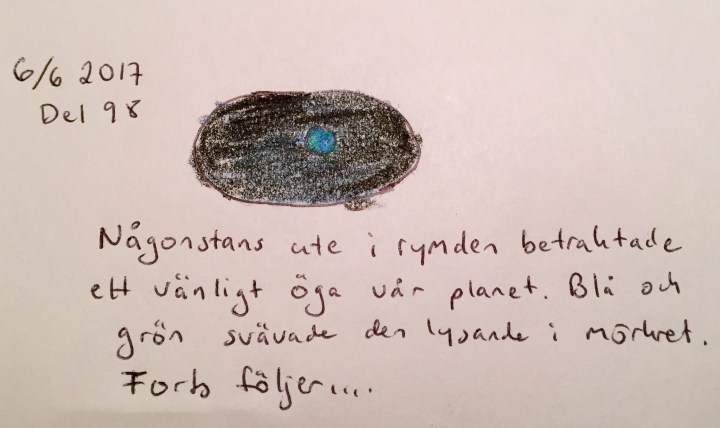 6/6 2017
Del 98
Någonstans ute i rymden betraktade
ett vänligt öga vår planet. Blå och
grön svävade den lysande i mörkret.
Forts följer....